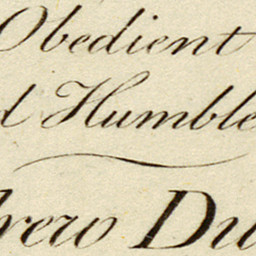 Obedient
d Humble
drew Du